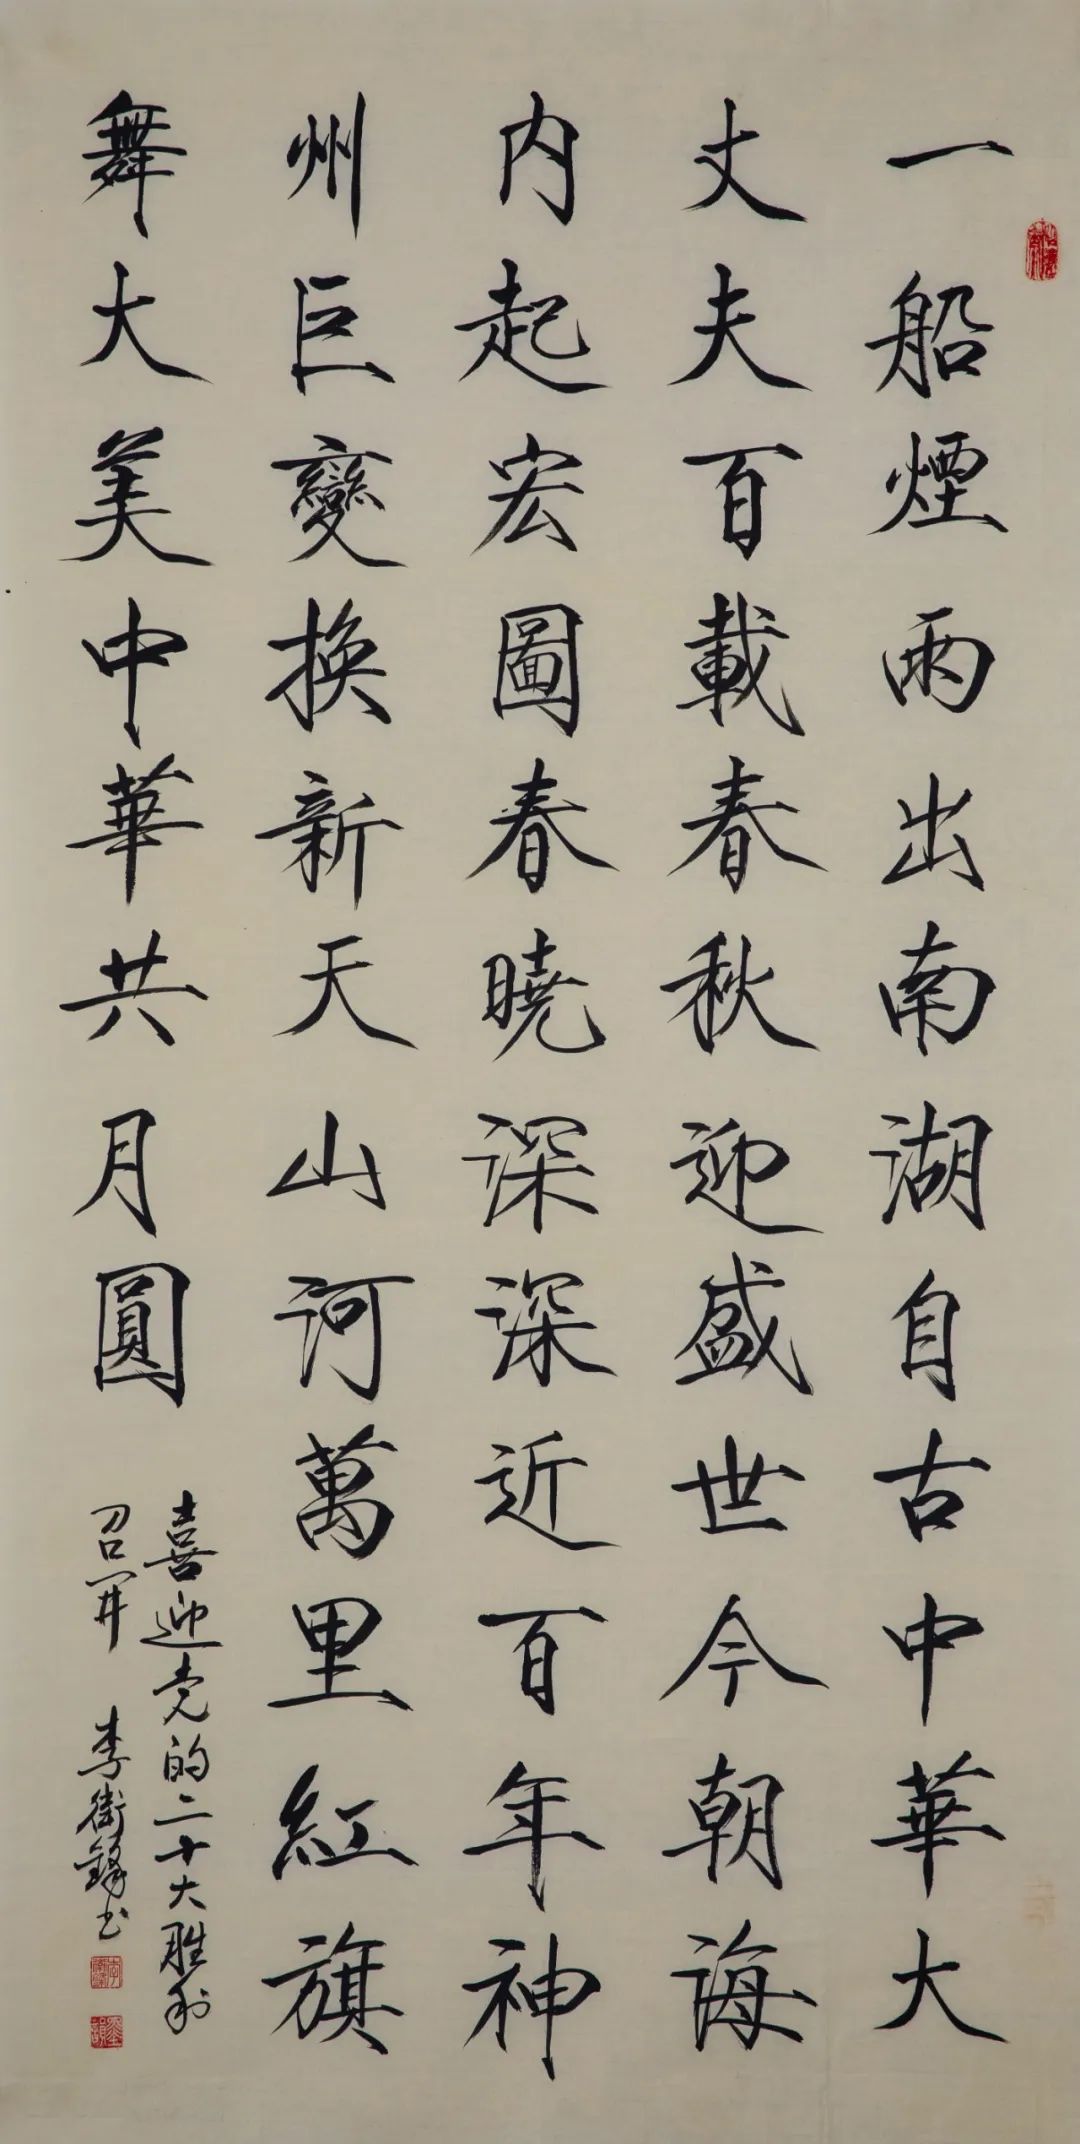 一船煙雨出南湖自古中華大
丈夫百載春秋迎盛世今朝海
内起宏圖春曉深深近百年神
州巨變換新天山河萬里紅旗
舞大美中華共月圓
喜迎党的二十大胜利
召开 李衛鋒书